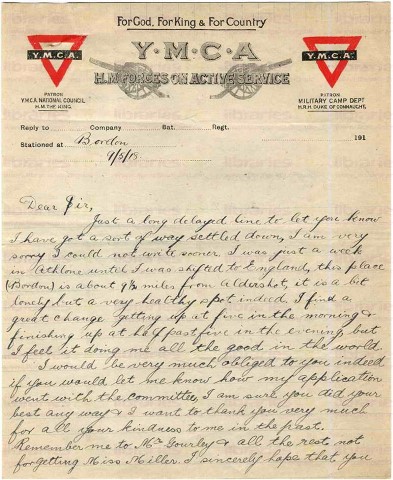 For God, For King & For Country
Y·M·C·A
H.M FORCES ON ACTIVE SERVICE
Y.M.C.A.
Y.M.C.A.
PATRON
Y.M.C.A. NATIONAL COUNCIL
H.M. THE KING.
PATRON
MILITARY CAMP DEPT
H.R.H. DUKE OF CONNAUGHT.
Reply to Company Bat. Regt.
Stationed at Bordon 191
9/5/18.
Dear Sir,
Just a long delayed line to let you know
I have got a sort of way settled down, I am very
sorry I could not write sooner. I was just a week
in Athlone until I was shifted to England, this place
(Bordon) is about 9½ miles from Aldershot, it is a bit
lonely but a very healthy spot indeed. I find a
great change getting up at five in the morning &
finishing up at half past five in the evening, but
I feel it doing me all the good in the world.
I would be very much obliged to you indeed
if you would let me know how my application
went with the committee, I am sure you did your
best any way & I want to thank you very much
for all your kindness to me in the past.
Remember me to Mr Gourley & all the rest not
forgetting Miss Miller. I sincerely hope that you